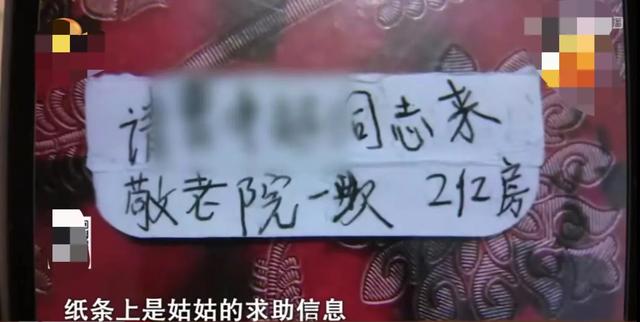 请 同志来
敬老院一 房
纸条上是姑姑的求助信息